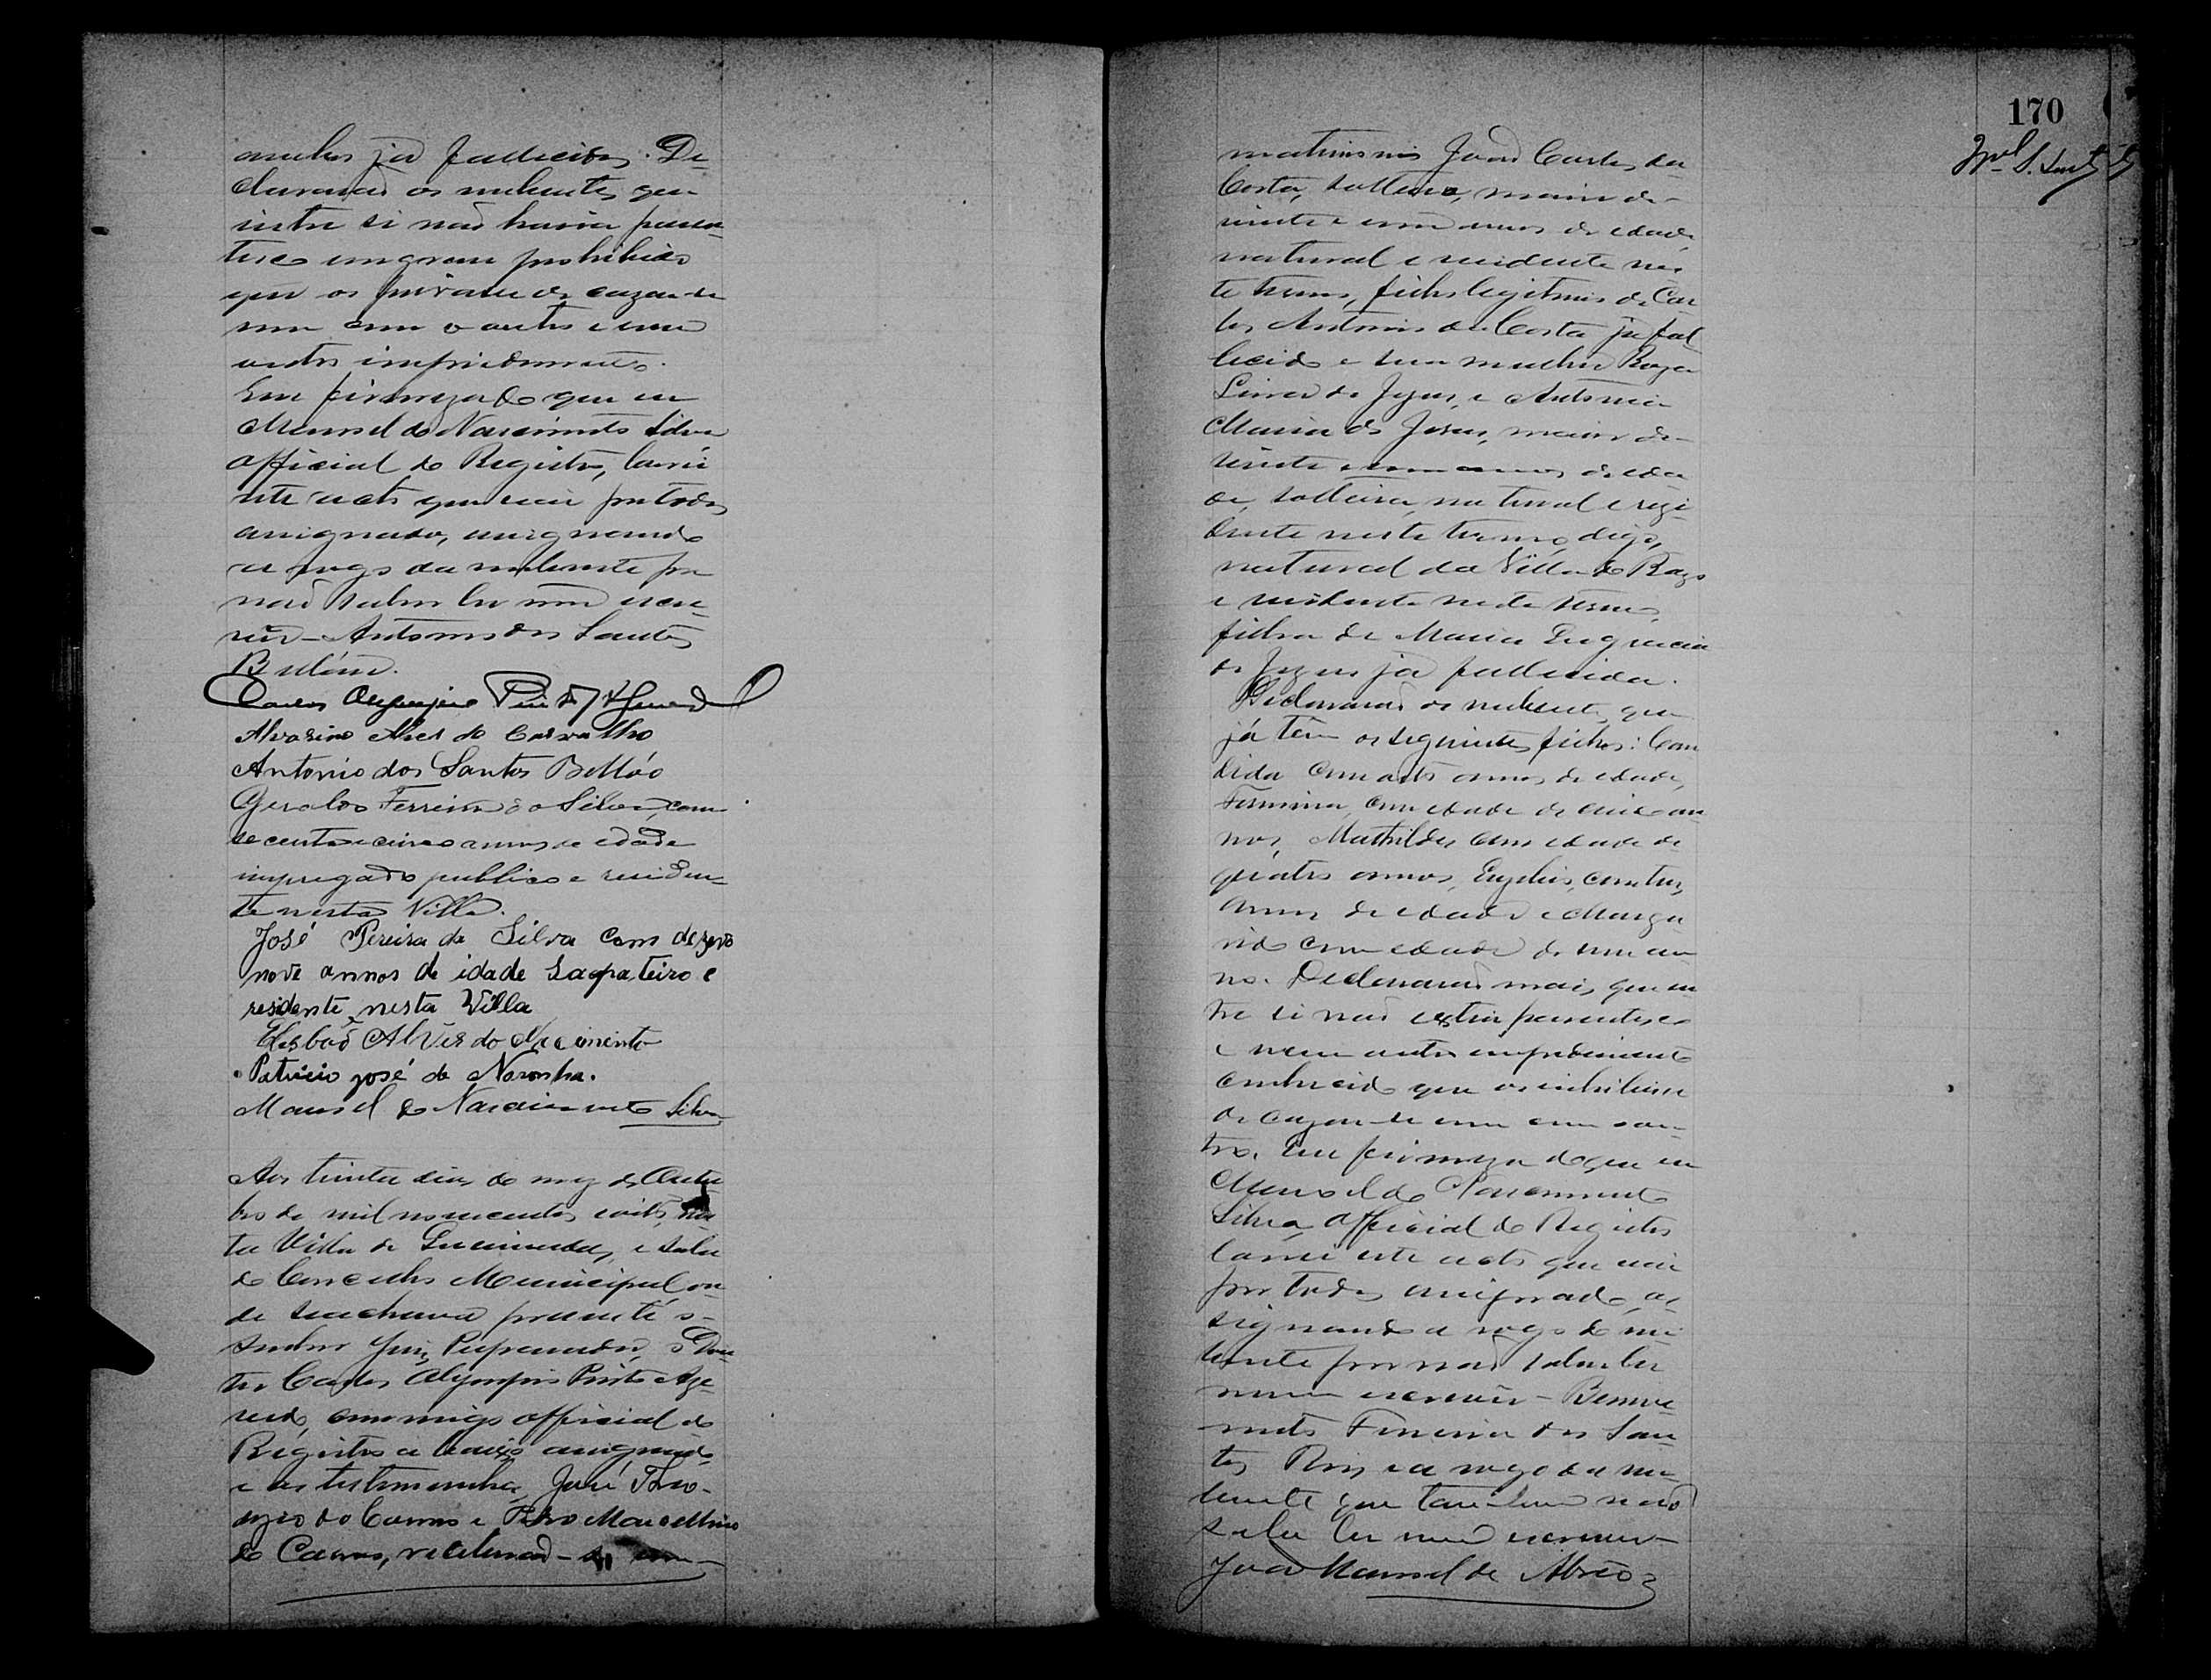 ambos já fallecidos. De
clararaõ os nubentes que
entre si naõ havia paren
tesco em grau prohibido
que os privasse de cazar-se
um com o outro e nem
outro impedimento.
Em firmeza do que eu
Manoel do Nascimento Silva
official do Registro, lavrei
este acto que vai por todos
assignado, assignando
a rogo da nubente por
naõ saber ler nem escre
ver - Antonio dos Santos
Bellaõ.
Carlos Olympio Pinto
Alvarino Alves de Carvalho
Antonio dos Santos Bellão
Geraldo Ferreira da Silva, com
secenta e cinco annos de edade
impregado publico e residen
te nesta Villa.
José Pereira da Silva com dezeno
nove annos de idade Sapateiro e
residente nesta Villa
Elesbaõ Alves do Nascimento
Patricio josé de Noronha.
Manoel do Nascimento Silva
Aos trinta dias do mez de Outu
bro de mil novecentos e oito, nes
ta Villa de e sala
do Concelho Municipal on
de se achava presente o
senhor Juiz Preparador, o Dou
tor Carlos Olympio Pinto Aze
vedo, commigo official do
Registro a baixo assignado,
e as testemunhas, José
do Carmo e Pedro Marcellino
do Carmo, receberaõ-se em
170
matrimonio Joaõ Carlos da
Costa, solteiro, maior de
vinte e um annos de edade,
natural e residente nes
te termo, filho legitimo de Car
los Antonio da Costa já fal
lecido e sua mulher Roza
Lina de Jezus, e Antonia
Maria de Jesus, maior de
vinte e um annos de eda
de, solteira, natural e rezi
dente neste termo, digo,
natural da Villa do
e residente neste termo,
filha de Maria Engracia
de Jezus já fallecida.
Declararaõ os nubentes que
já têm os seguintes filhos: Can
dida com oito annos de edade,
Firmina, com edade de cinco an
nos, Mathildes com edade de
quatro annos, com tres
annos de edade e Marga
rida com edade de um an
no. Declararaõ mais que en
tre si naõ existia parentesco
e nem outro impedimento
conhecido que os inhibisse
de cazar-se um com o ou
tro. Em firmeza do que eu
Manoel do Nascimento
Silva official do Registro
lavrei este acto que vai
por todos assignado, as
signando a rogo do nu
bente por naõ saber ler
nem escrever - Bemve
nuto Ferreira dos San
tos Reis e a rogo da nu
bente que tambem naõ
sabe ler nem escrever
Joaõ Manoel de Abreo